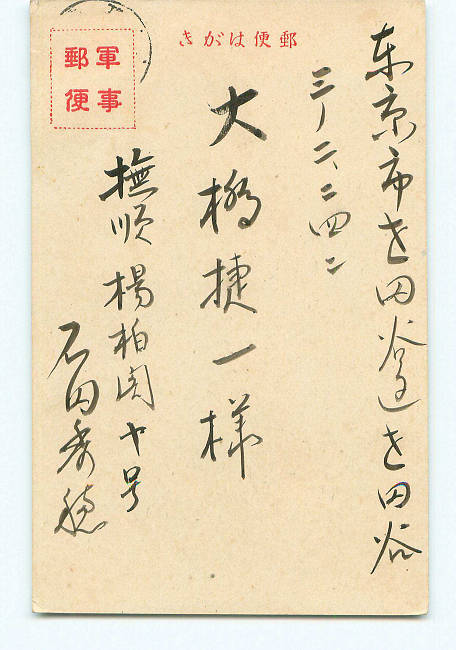 郵便はがき
軍事
郵便
東京市世田谷区世田谷
三ノ二、二四二
大橋捷一様
撫順楊柏図廿号
石田秀穂